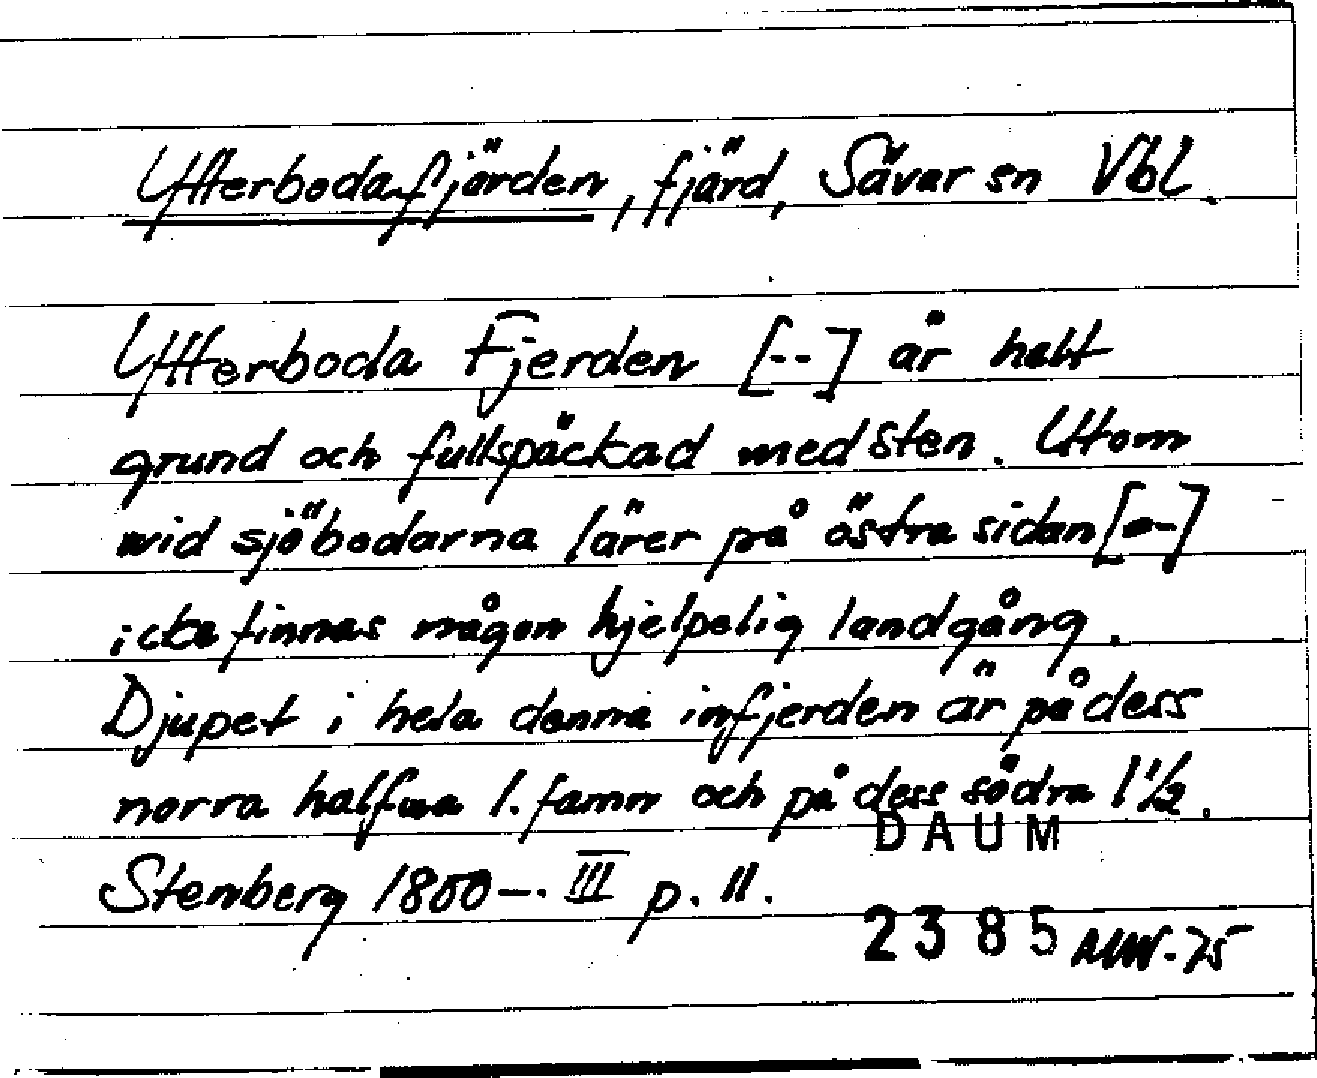 Ytterbodafjärden, fjärd, Sävar sn Vbl.
Ytterboda Fjerden [--] är helt
grund och fullspäckad med sten. Utom
wid sjöbodarna lärer på östra sidan [--]
icke finnas någon hjelpelig landgång.
Djupet i hela denna infjerden är på dess
norra halfwa 1. famn och på dess södra 1 1/2.
DAUM
Stenberg 1800-. III p. 11.
2385 MW-75